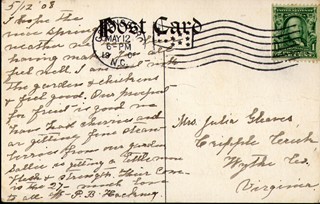 5/12 08
I hope the
nice Spring
weather we
having may
feel well. I am
the garden & chickens
& feel good. Our prospect
for fruit is good we
have had cherries and
are getting fine
berries from our garden
Sallie is getting a little more
flesh & strength. Their Com
is the 27 - much love
to all - P. B. Hackney
Post Card
MAY 12
6-PM
N.C.
Mrs. Julia Gleaves,
Cripple Creek
Wythe Co,
Virginia